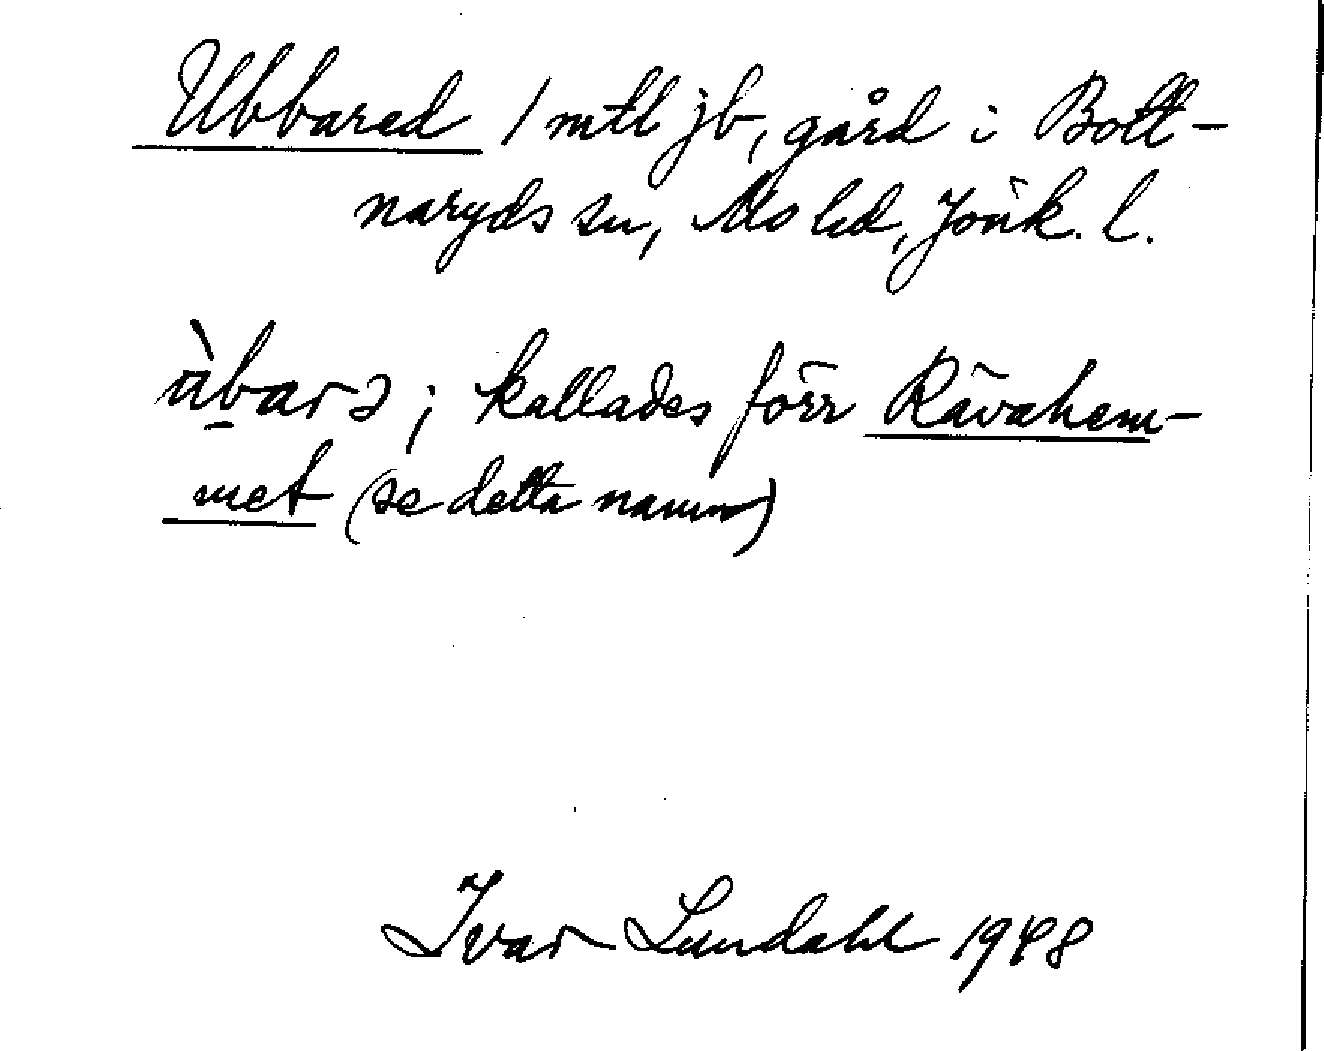 Ubbared 1 mtl jb, gård i Bott-
naryds sn, Mo hd, Jönk. l.
ùb̲arə; kallades förr Rävahem-
met (se detta namn)
Ivar Lundahl 1948